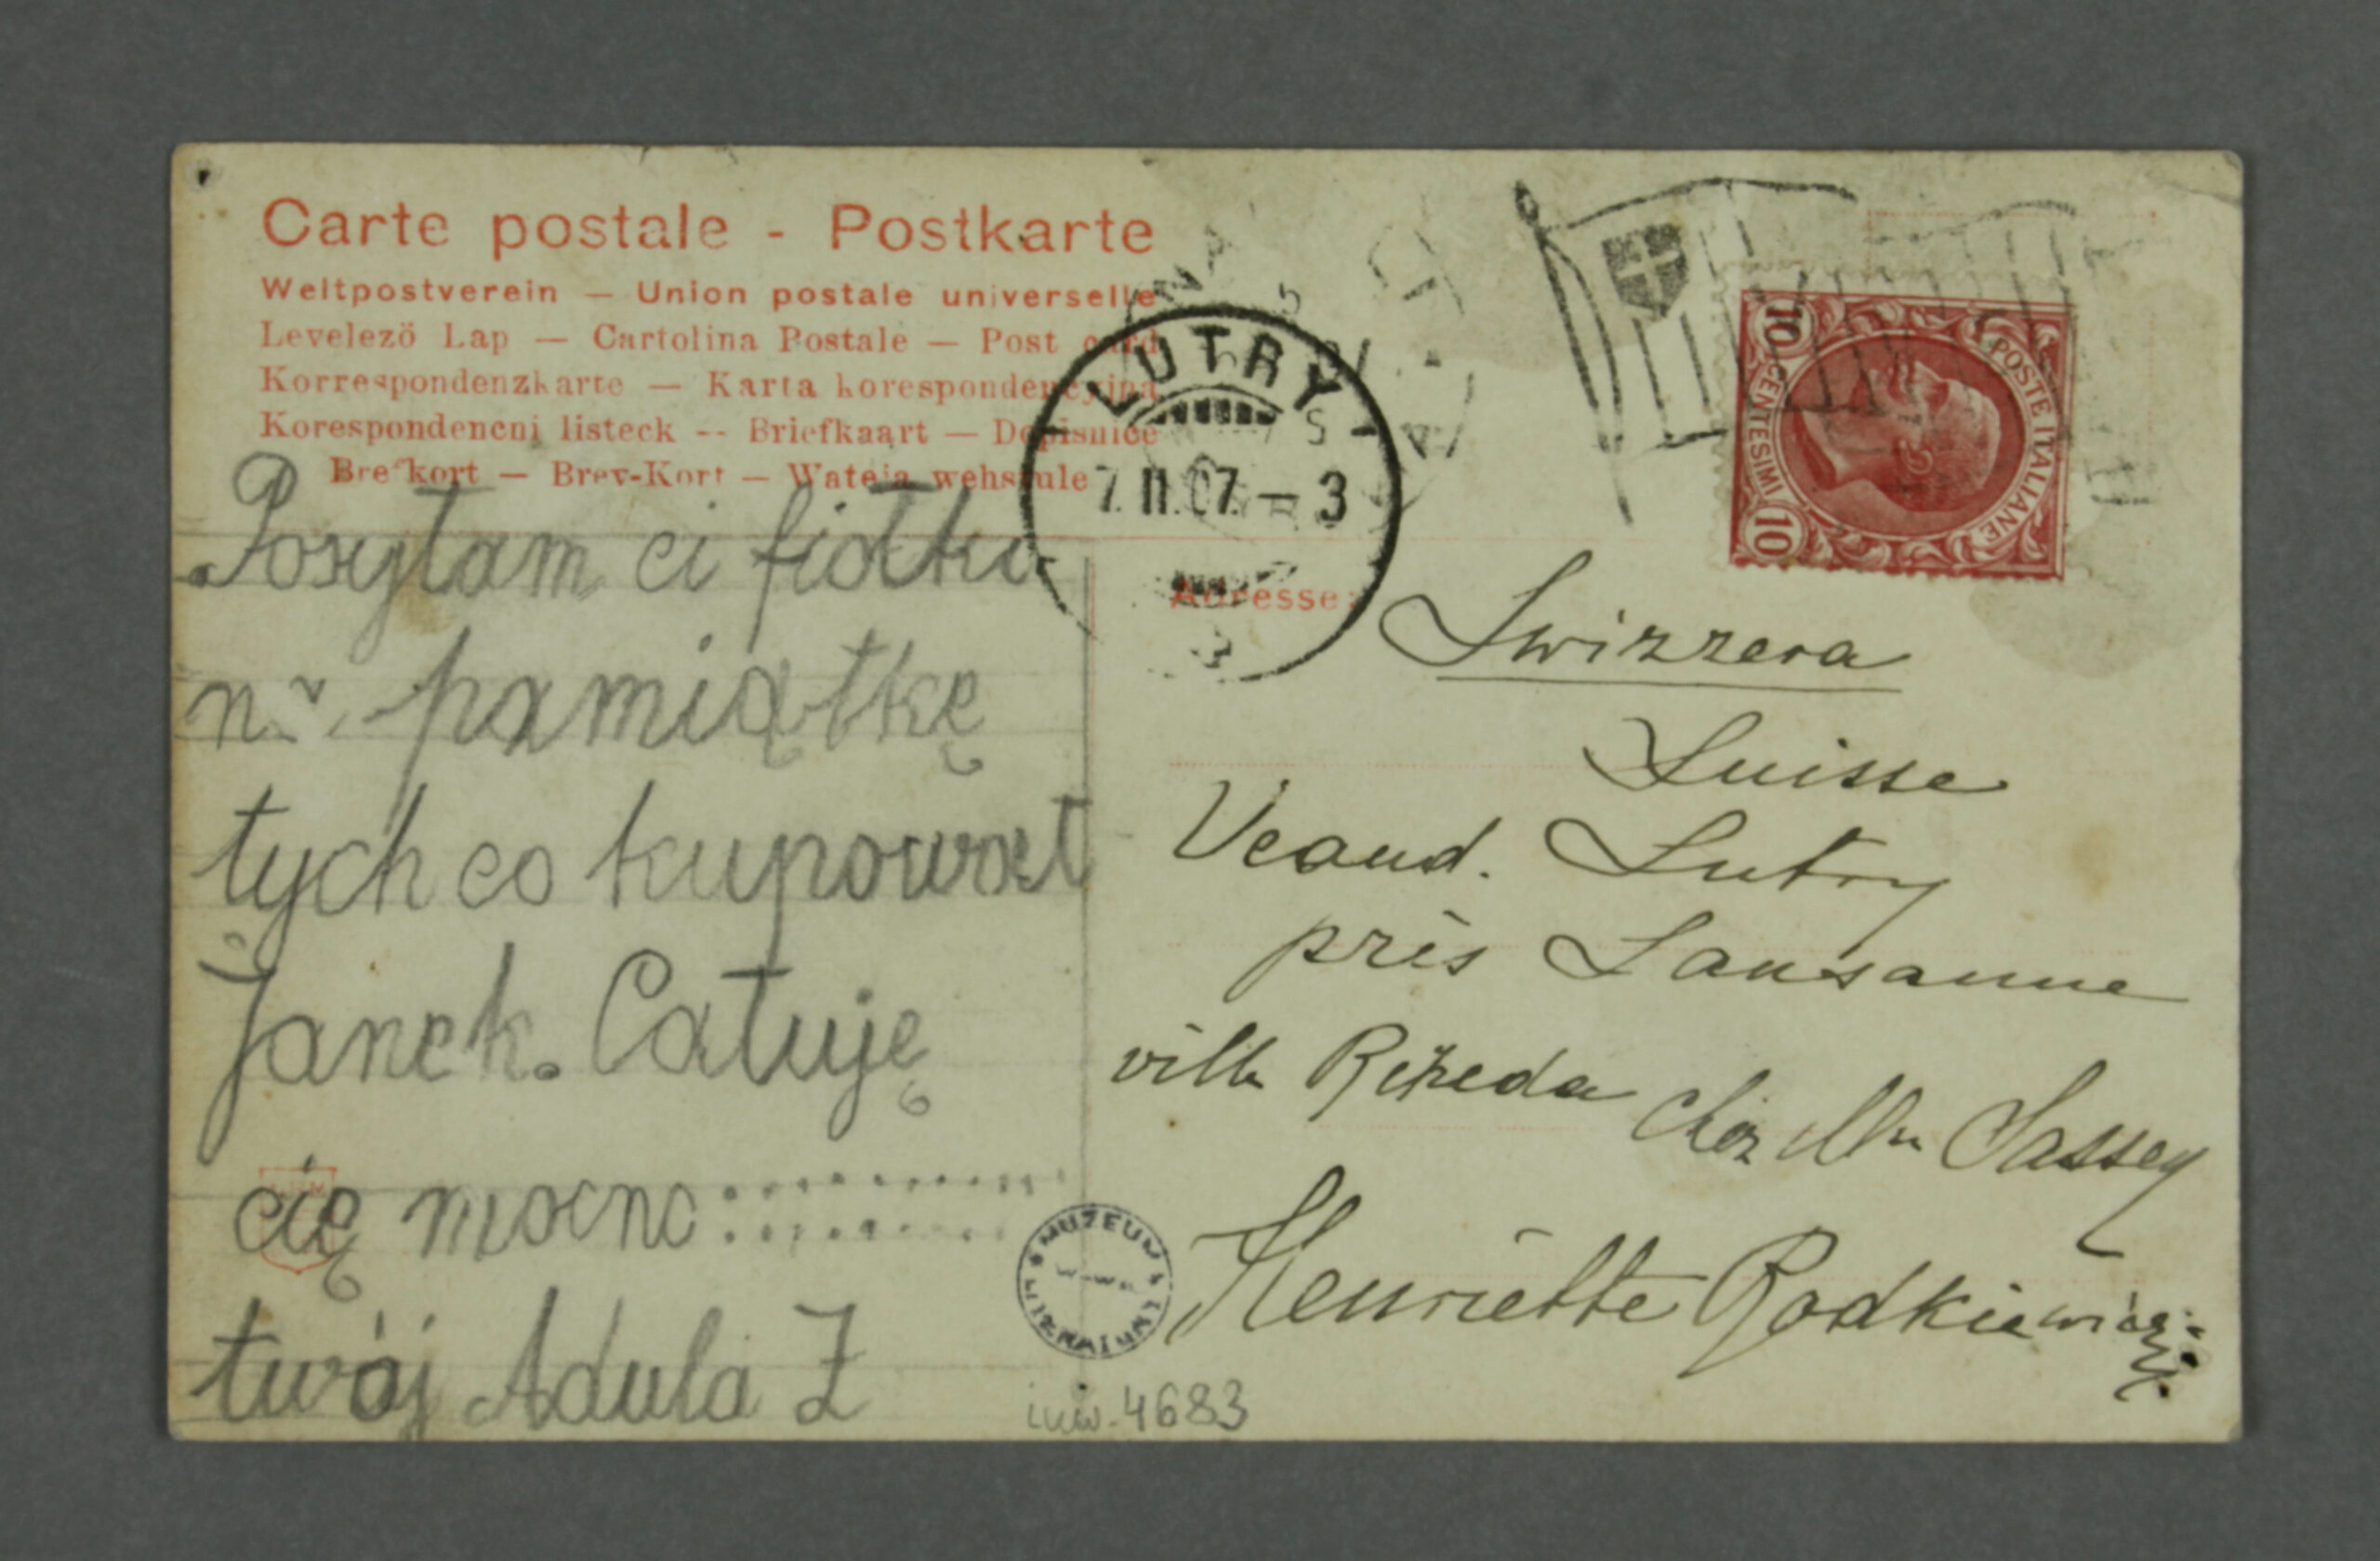 Carte postale - Postkarte
Weltpostverein — Union postale universelle
Levelezö Lap — Cartolina Postale — Post card
Korrespondenzkarte — Karta korespondencyjna
Korespondencni listeck -- Briefkaart — Dopisnice
Brefkort — Brev-Kort — Wateja wehstule
LUTRY
7.II.07.–3
10 CENTESIMI 10
POSTE ITALIANE
Adresse:
Posyłam ci fiołki
na pamiątkę
tych co kupował
Janek. Całuję
cię mocno
twój Adula Z
Swizzera
Suisse
Veaud. Lutry
près Lausanne
villa Rezeda
chez Mme Sassey
Henriette Rodkiewicz
MUZEUM LITERATURY
W-WA
inw. 4683